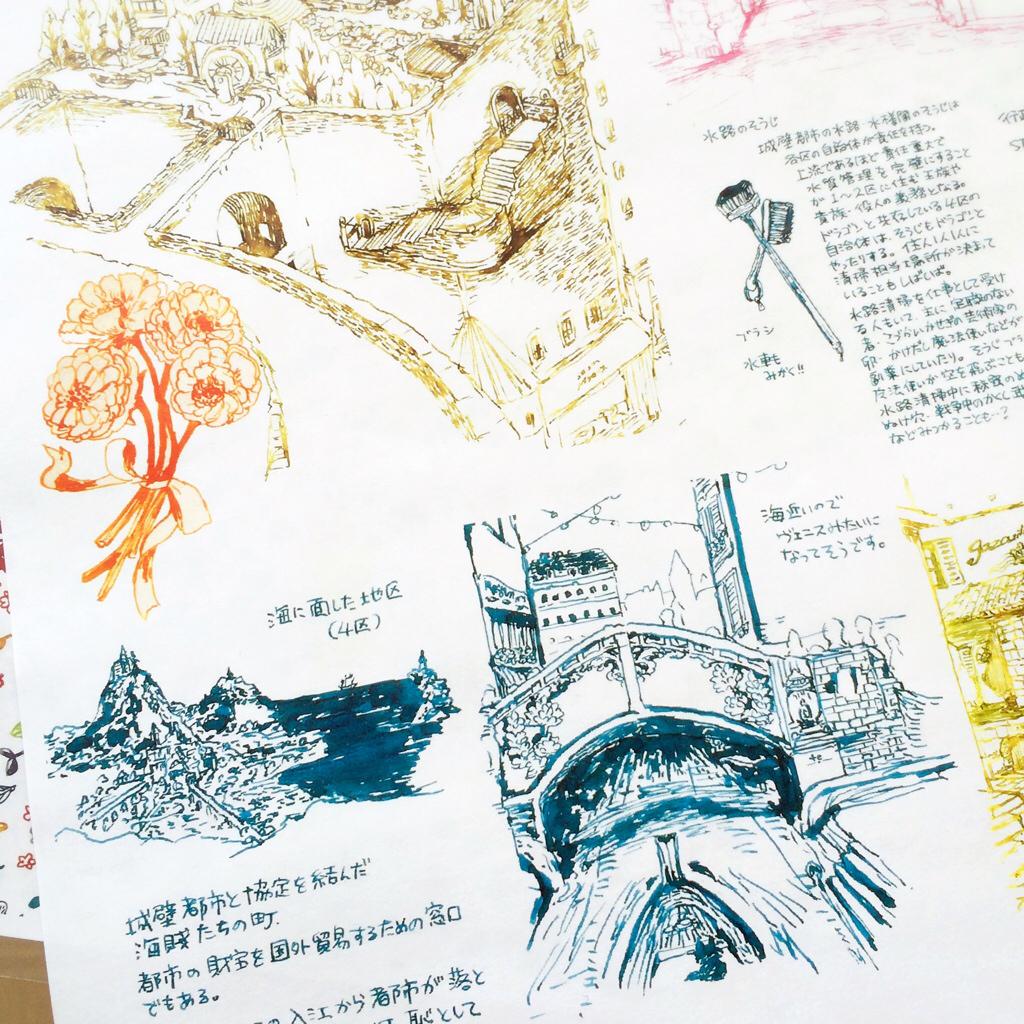 水路のそうじ
城壁都市の水路・水桟関のそうじは
各区の自治体が責任を持つ。
上流であるほど責任重大で
水質管理を完璧にすること
が1〜2区に住む王族や
貴族・役人の義務となる。
ドラゴンと共存している4区の
自治体は、そうじもドラゴンと
やったりする。住人1人1人に
清掃担当場所が決まって
いることもしばしば。
水路清掃を仕事として受け
る人もいて、主に定職のない
者・こづかいかせぎの芸術家の
卵・かけだし魔法使いなどが
副業にしていたり。そうじブラ
水路清掃中に秘密の
ぬけ穴、戦争中のかく
などみつかることも…?
ブラシ
水車も
みがく!!
海近いので
ヴェニスみたいに
なってそうです。
海に面した地区
(4区)
城壁都市と協定を結んだ
海賊たちの町。
都市の財宝を国外貿易するための窓口
でもある。
の入江から都市が落と
恥として